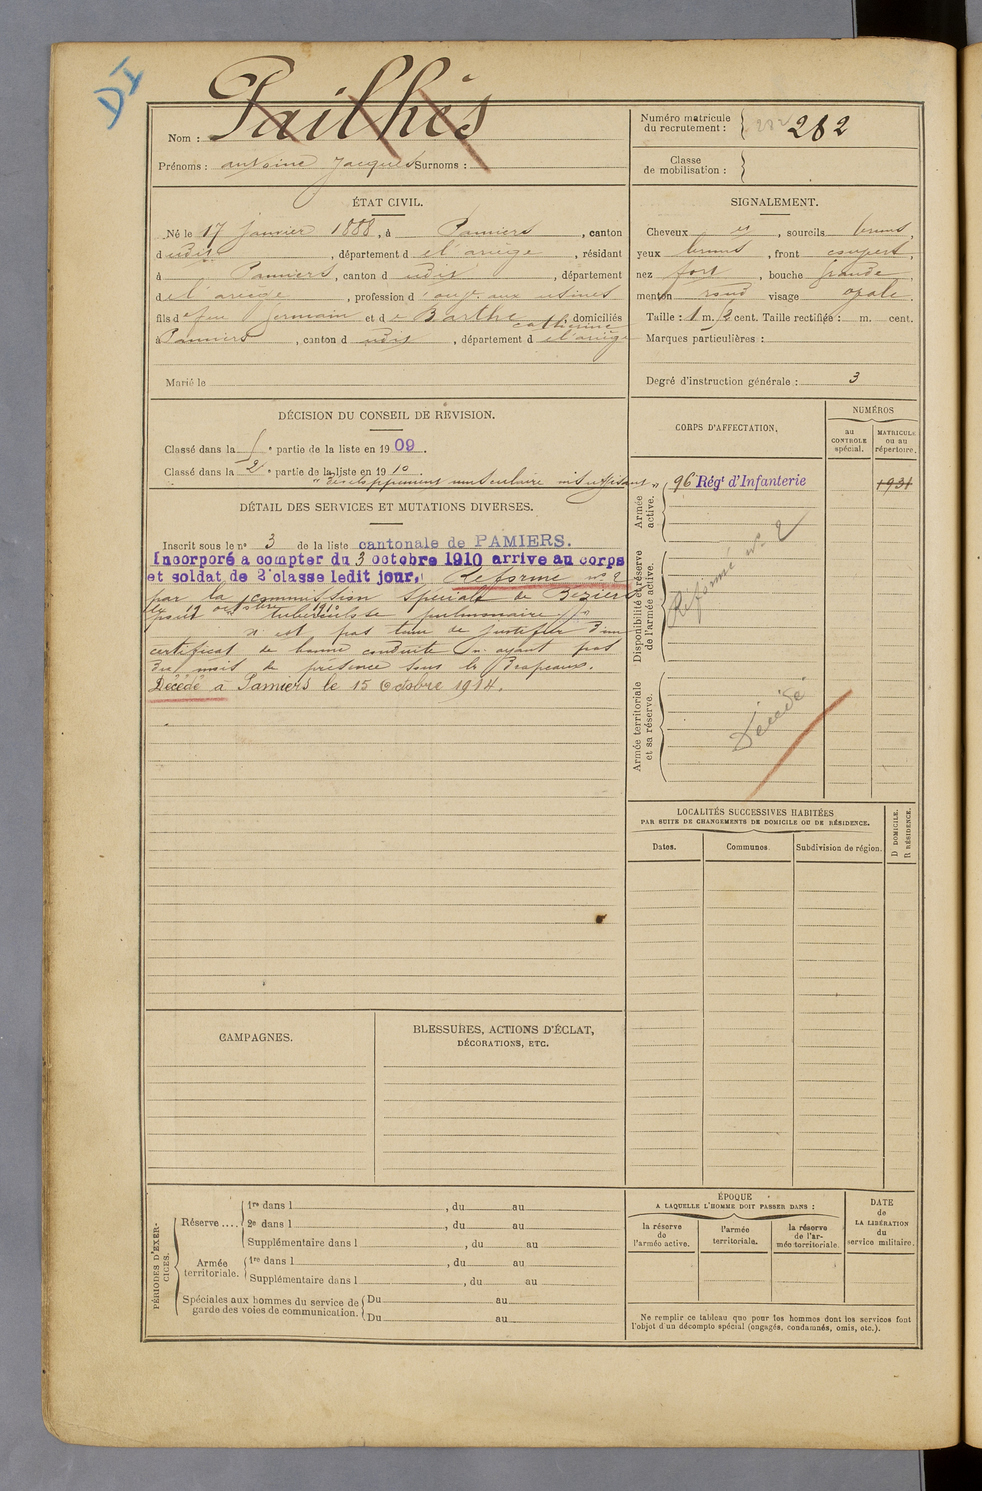 DI
Nom : Pailhès
Prénoms : antoine Jacques Surnoms :
Numéro matricule du recrutement : 282 282
Classe de mobilisation :
ÉTAT CIVIL.
Né le 17 janvier 1888, à Pamiers, canton
dudit, département de l'ariège, résidant
à Pamiers, canton dudit, département
de l'ariège, profession d'ouvr. aux usines
fils de feu Germain et de Barthe catherine, domiciliés
à Pamiers, canton dudit, département de l'ariège
Marié le
SIGNALEMENT.
Cheveux et, sourcils bruns,
yeux bruns, front couvert,
nez fort, bouche grande
menton rond visage ovale.
Taille : 1 m. cent. Taille rectifiée : m. cent.
Marques particulières :
Degré d'instruction générale : 3
DÉCISION DU CONSEIL DE RÉVISION.
Classé dans la 5e partie de la liste en 1909.
Classé dans la 2e partie de la liste en 1910.
"développement musculaire insuffisant"
DÉTAIL DES SERVICES ET MUTATIONS DIVERSES.
Inscrit sous le n° 3 de la liste cantonale de PAMIERS.
Incorporé à compter du 3 octobre 1910 arrive au corps
et soldat de 2e classe ledit jour. Réformé n° 2
par la commission spéciale de Béziers
le 19 octobre 1910
pour tuberculose pulmonaire.
N'est pas tenu de justifier d'un
certificat de bonne conduite n'ayant pas
mois de présence sous les Drapeaux.
Décédé à Pamiers le 15 Octobre 1914.
CORPS D'AFFECTATION,
NUMÉROS
au CONTROLE spécial.
MATRICULE ou au répertoire.
Armée active.
96e Régt d'Infanterie
1931
Disponibilité et réserve de l'armée active.
Réformé n° 2
Armée territoriale et sa réserve.
Décédé
LOCALITÉS SUCCESSIVES HABITÉES
PAR SUITE DE CHANGEMENTS DE DOMICILE OU DE RÉSIDENCE.
Dates.
Communes.
Subdivision de région.
D DOMICILE.
R RÉSIDENCE.
CAMPAGNES.
BLESSURES, ACTIONS D'ÉCLAT,
DÉCORATIONS, ETC.
PÉRIODES D'EXERCICES.
Réserve....
1re dans l , du au
2e dans l , du au
Supplémentaire dans l , du au
Armée territoriale.
1re dans l , du au
Supplémentaire dans l , du au
Spéciales aux hommes du service de garde des voies de communication.
Du au
Du au
ÉPOQUE
A LAQUELLE L'HOMME DOIT PASSER DANS :
la réserve de l'armée active.
l'armée territoriale.
la réserve de l'armée territoriale
DATE de LA LIBÉRATION du service militaire.
Ne remplir ce tableau que pour les hommes dont les services font
l'objet d'un décompte spécial (engagés, condamnés, omis, etc.).